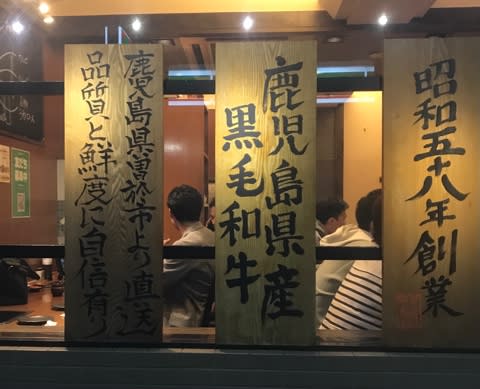 昭和五十八年創業
鹿児島県産
黒毛和牛
鹿児島県曽於市より直送
品質と鮮度に自信有り